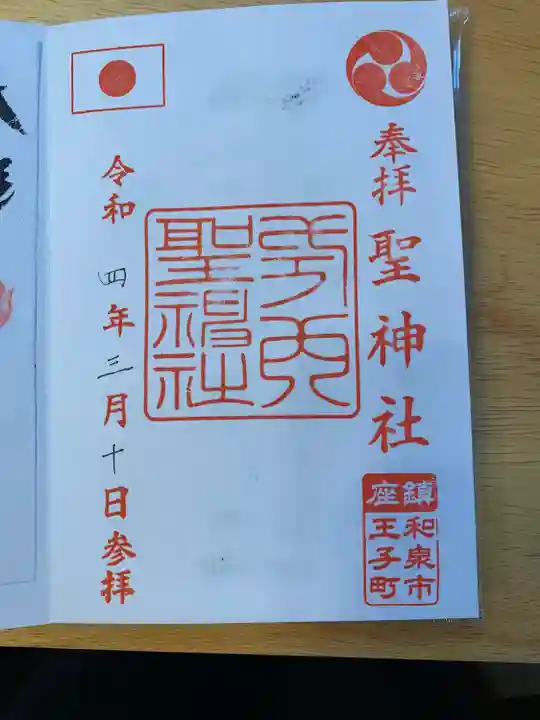 奉拝
聖神社
鎮座
和泉市
王子町
聖神社
令和四年三月十日参拝